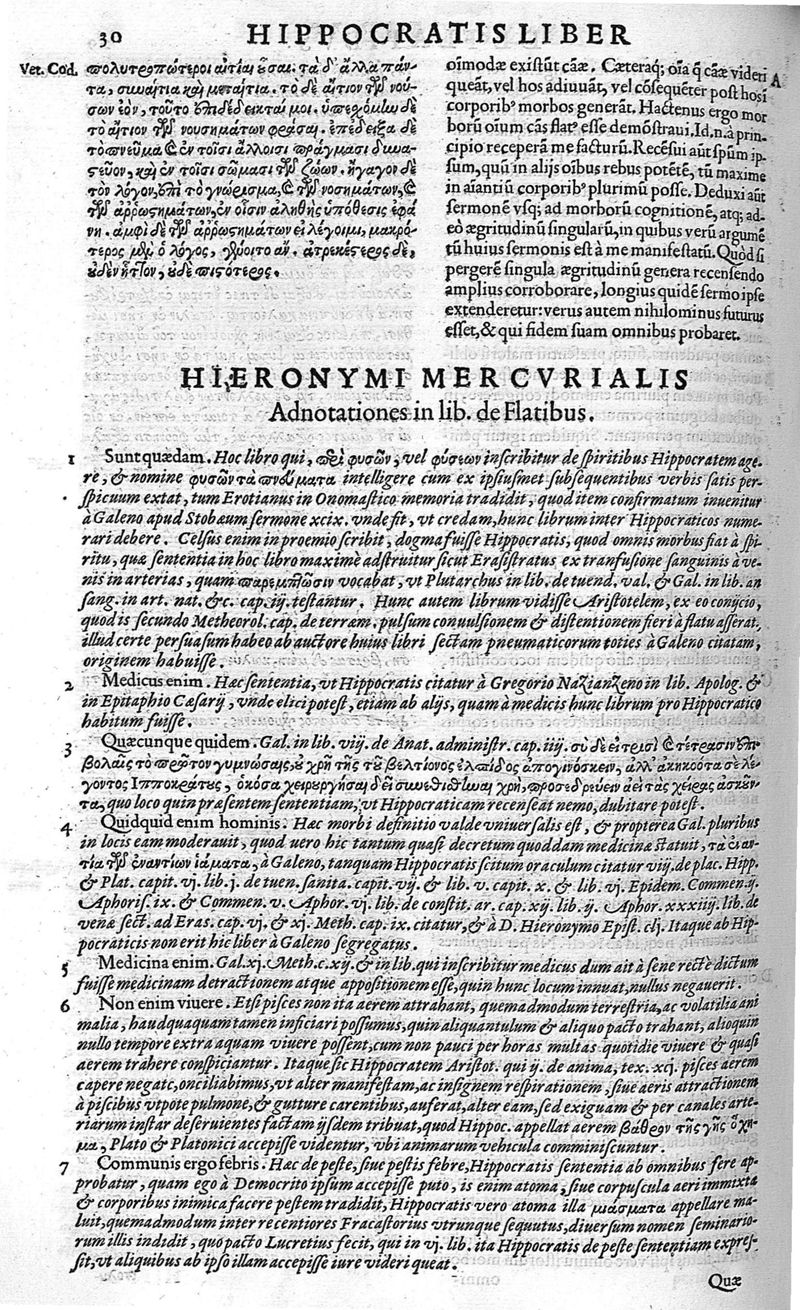 30 HIPPOCRATIS LIBER
Vet. Cod.
πολυτροπώτεροι αἰτίαι ἔσαι. τὰ δ᾽ ἄλλα πάν-
τα, συναίτια καὶ μεταίτια. τὸ δὲ αἴτιον τ̃ νού-
σων ἐὸν, τοῦτο ἐπιδέδεικταί μοι. ὑπεχόμlω δὲ
τὸ αἴτιον τ̃ νουσημάτων φράσαι. ἐπέδειξα δὲ
τὸ πνεῦμα ἐν τοῖσι ἄλλοισι πράγμασι δυνα-
στεῦον, καὶ ἐν τοῖσι σώμασι τ̃ ζώων. ἤγαγον δὲ
τὸν λόγον, ἐπὶ τὸ γνώρισμα, τ̃ νοσημάτων,
τ̃ ἀῤῥωστημάτων, ἐν οἷσιν ἀληθὴς ὑπόθεσις ἐφά-
νη. ἀμφὶ δὲ τ̃ ἀῤῥωστημάτων εἰ λέγοιμι, μακρό-
τερος μὲν ὁ λόγος, γένοιτο ἄν. ἀτρεκέστερος δὲ,
οὐδὲν ἧττον, οὐδὲ πιστότερος.
oĩmodæ existũt cãæ. Cæteraq; oĩa q̃ cãæ videri A
queãt, vel hos adiuuãt, vel cõsequẽter post hosĩ
corporib⁹ morbos generãt. Hactenus ergo mor
borũ oĩum cãs flat⁹ esse demõstraui. Id.n.à prin-
cipio receperã me facturũ. Recẽsui aũt spũm ip-
sum, quũ in alijs oĩbus rebus potẽtẽ, tũ maxime
in aĩantiũ corporib⁹ plurimũ posse. Deduxi aũt
sermonẽ vsq; ad morborũ cognitionẽ, atq; ad-
eo ægritudinũ singularũ, in quibus verũ argumẽ
tũ huius sermonis est à me manifestatũ. Quòd si
pergerẽ singula ægritudinũ genera recensendo
amplius corroborare, longius quidẽ sermo ipse
extenderetur: verus autem nihilominus futurus
esset, & qui fidem suam omnibus probaret.
HIERONYMI MERCVRIALIS
Adnotationes in lib. de Flatibus.
1 Sunt quædam. Hoc libro qui, περὶ φυσῶν, vel φύσεων inscribitur de spiritibus Hippocratem age-
re, & nomine φυσῶν τὰ πνεύματα intelligere cum ex ipsiusmet subsequentibus verbis satis per-
spicuum extat, tum Erotianus in Onomastico memoria tradidit, quod item confirmatum inuenitur
à Galeno apud Stobæum sermone xcix. vnde fit, vt credam, hunc librum inter Hippocraticos nume-
rari debere. Celsus enim in proemio scribit, dogma fuisse Hippocratis, quod omnis morbus fiat à spi-
ritu, quæ sententia in hoc libro maximè adstruitur sicut Erasistratus ex tranfusione sanguinis à ve-
nis in arterias, quam παρέμπτωσιν vocabat, vt Plutarchus in lib. de tuend. val. & Gal. in lib. an
sang. in art. nat. &c. cap. ij. testantur. Hunc autem librum vidisse Aristotelem, ex eo conijcio,
quod is secundo Metheorol. cap. de terræm. pulsum conuulsionem & distentionem fieri à flatu asserat,
illud certe persuasum habeo ab auctore huius libri sectam pneumaticorum toties à Galeno citatam,
originem habuisse.
2 Medicus enim. Hæc sententia, vt Hippocratis citatur à Gregorio Nazianzeno in lib. Apolog. &
in Epitaphio Cæsarij, vnde elici potest, etiam ab alijs, quam à medicis hunc librum pro Hippocratico
habitum fuisse.
3 Quæcunque quidem. Gal. in lib. viij. de Anat. administr. cap. iiij. σὺ δὲ εἴ τρισὶ τέτρασιν ἐπι-
βολαῖς τὸ πρῶτον γυμνώσαις, οὐ χρὴ τῆς τοῦ βελτίονος ἐλπίδος ἀπογινώσκειν, ἀλλ᾽ ἀκηκοότα σὲ λέ-
γοντος Ιπποκράτους, ὁκόσα χειρουργῆσαι δεῖ συνεθισθῆναι χρὴ, προσεδρεύειν ἀεὶ τὰς χεῖρας ἀσκῶν-
τα, quo loco quin præsentem sententiam, vt Hippocraticam recenseat nemo, dubitare potest.
4 Quidquid enim hominis. Hæc morbi definitio valde vniuersalis est, & propterea Gal. pluribus
in locis eam moderauit, quod uero hic tantum quasi decretum quoddam medicinæ statuit, τὰ ἐναν-
τία τ̃ ἐναντίων ἰάματα, à Galeno, tanquam Hippocratis scitum oraculum citatur viij. de plac. Hipp.
& Plat. capit. vj. lib. j. de tuen. sanita. capit. vij. & lib. v. capit. x. & lib. vj. Epidem. Commen. ij.
Aphoris. ix. & Commen. v. Aphor. vj. lib. de constit. ar. cap. xij. lib. ij. Aphor. xxxiiij. lib. de
venæ sect. ad Eras. cap. vj. & xj. Meth. cap. ix. citatur, & à D. Hieronymo Epist. clj. Itaque ab Hip-
pocraticis non erit hic liber à Galeno segregatus.
5 Medicina enim. Gal. xj. Meth. c. xij. & in lib. qui inscribitur medicus dum ait à sene rectè dictum
fuisse medicinam detractionem atque appositionem esse, quin hunc locum innuat, nullus negauerit.
6 Non enim viuere. Etsi pisces non ita aerem attrahant, quemadmodum terrestria, ac volatilia ani
malia, haudquaquam tamen inficiari possumus, quin aliquantulum & aliquo pacto trahant, alioquin
nullo tempore extra aquam viuere possent, cum non pauci per horas multas quotidie viuere & quasi
aerem trahere conspiciantur. Itaque sic Hippocratem Aristot. qui ij. de anima, tex. xcj. pisces aerem
capere negat c,onciliabimus, vt alter manifestam, ac insignem respirationem, siue aeris attractionem
à piscibus vtpote pulmone, & gutture carentibus, auferat, alter eam, sed exiguam & per canales arte-
riarum instar deseruientes factam ijsdem tribuat, quod Hippoc. appellat aerem βάθρον τῆς γῆς ὄχη-
μα, Plato & Platonici accepisse videntur, vbi animarum vehicula comminiscuntur.
7 Communis ergo febris. Hæc de peste, siue pestis febre, Hippocratis sententia ab omnibus fere ap-
probatur, quam ego à Democrito ipsum accepisse puto, is enim atoma, siue corpuscula aeri immixta
& corporibus inimica facere pestem tradidit, Hippocratis vero atoma illa μιάσματα appellare ma-
luit, quemadmodum inter recentiores Fracastorius vtrunque sequutus, diuersum nomen seminario-
rum illis indidit, quo pacto Lucretius fecit, qui in vj. lib. ita Hippocratis de peste sententiam expres-
sit, vt aliquibus ab ipso illam accepisse iure videri queat.
Quæ